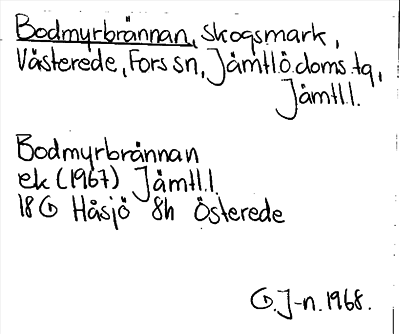 Bodmyrbrännan, skogsmark,
Västerede, Fors sn, Jämtl.ö.doms.tg,
Jämtl.l.
Bodmyrbrännan
ek (1967) Jämtl.l.
18 G Håsjö 8h Österede
G. J-n. 1968.